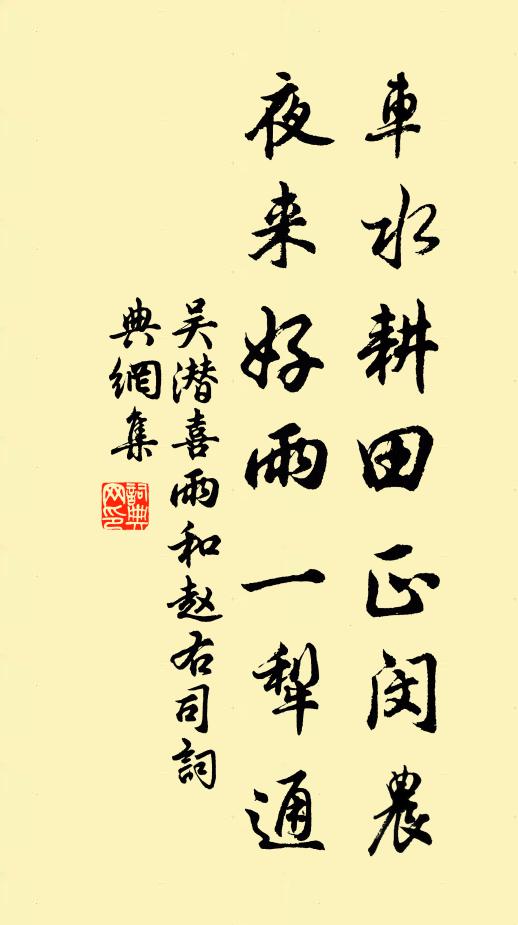 車水耕田正閔農
夜来好雨一犁通
吴潛喜雨和赵右司詞
典網集
詞典网印